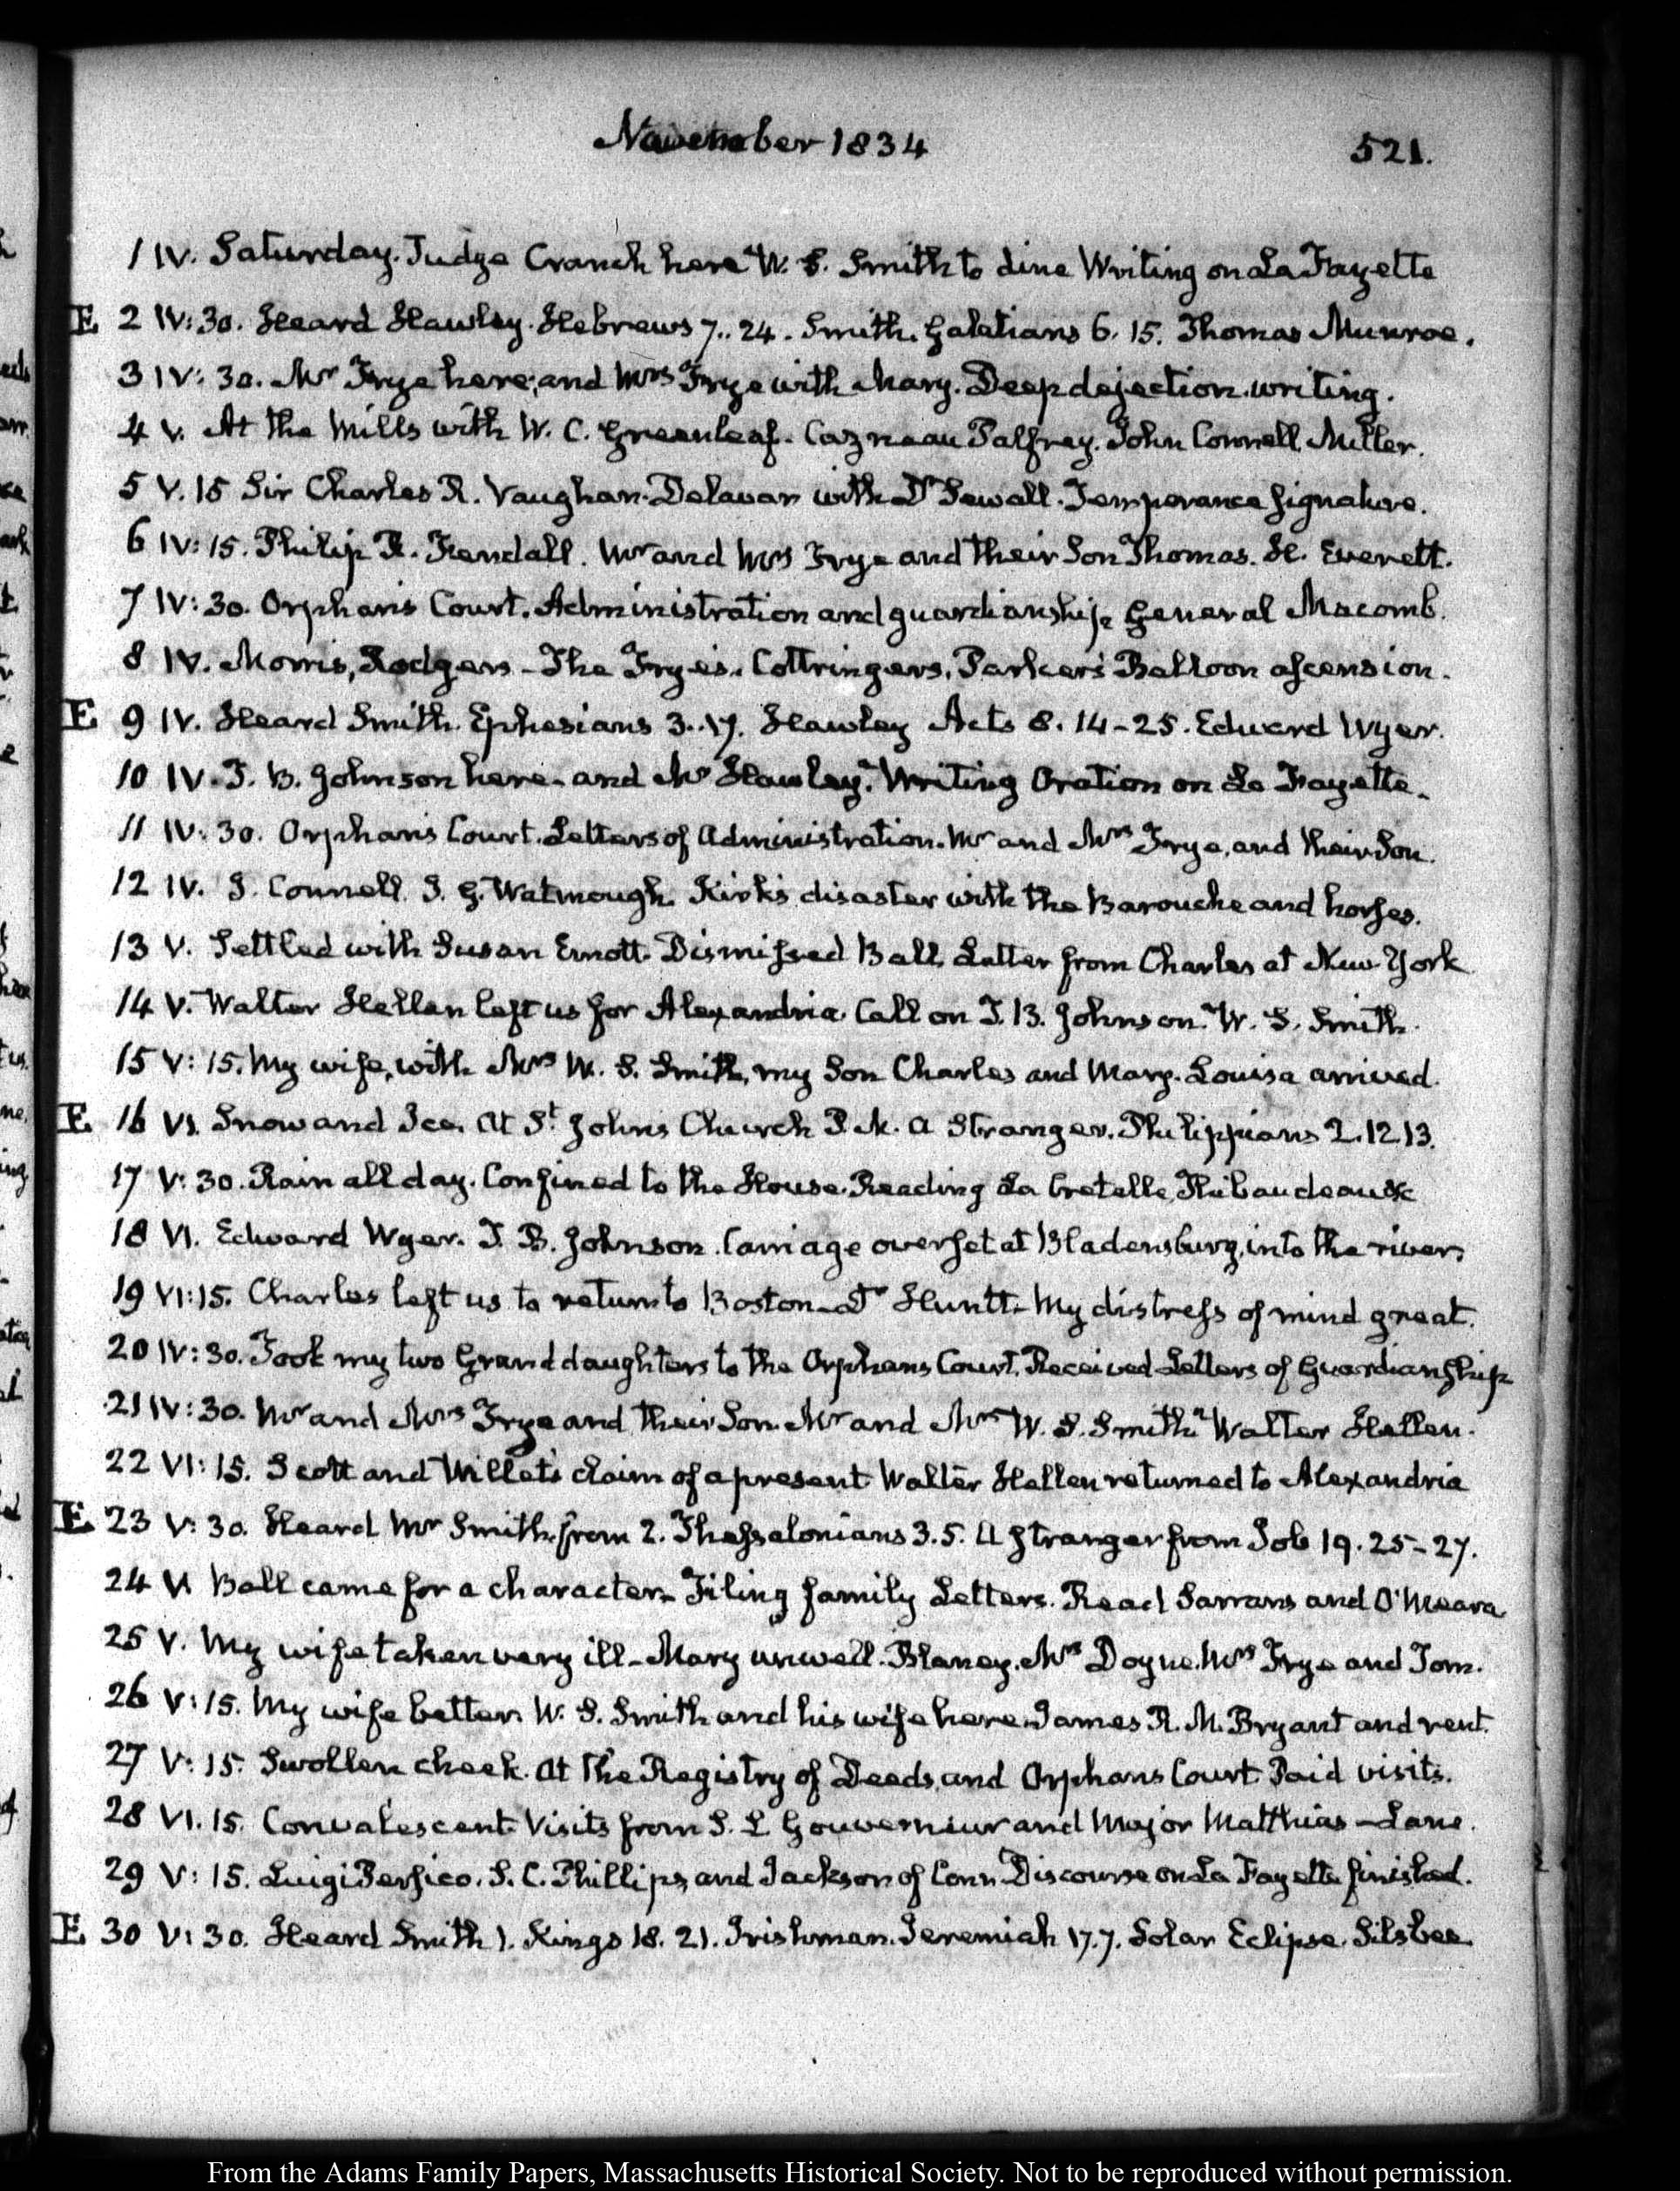 November 1834
521.
1 IV. Saturday. Judge Cranch here W. S. Smith to dine Writing on La Fayette
E 2 IV:30. Heard Hawley. Hebrews 7..24. Smith. Galatians 6.15. Thomas Munroe.
3 IV:30. Mr Frye here; and Mrs Frye with Mary. Deep dejection. writing.
4 V. At the Mills with W. C. Greenleaf. Cazneau Palfrey. John Connell Miller.
5 V.15 Sir Charles R. Vaughan. Delavan with Dr Sewall. Temperance signature.
6 IV:15. Philip R. Fendall. Mr and Mrs Frye and their Son Thomas. H. Everett.
7 IV:30. Orphan's Court. Administration and guardianship General Macomb.
8 IV. Morris, Rodgers - The Frye's. Cottringers. Parker's Balloon ascension.
E 9 IV. Heard Smith. Ephesians 3..17. Hawley Acts 8.14-25. Edward Wyer.
10 IV. T. B. Johnson here - and Mr Hawley. Writing Oration on La Fayette.
11 IV:30. Orphan's Court. Letters of Administration. Mr and Mrs Frye, and their Son.
12 IV. J. Connell. J. G. Watmough. Kirk's disaster with the Barouche and horses.
13 V. Settled with Susan Emott. Dismissed Ball. Letter from Charles at New York
14 V. Walter Hellen left us for Alexandria. Call on T. B. Johnson. W. S. Smith.
15 V:15. My wife, with Mrs W. S. Smith, my Son Charles and Mary-Louisa arrived.
E 16 VI. Snow and Ice. At St Johns Church P.M. a Stranger. Philippians 2.12 13.
17 V:30. Rain all day. Confined to the House. Reading La Cretelle, Thibaudeau &c
18 VI. Edward Wyer. T. B. Johnson. Carriage overset at Bladensburg, into the river.
19 VI:15. Charles left us to return to Boston - Dr Huntt. My distress of mind great.
20 IV:30. Took my two Granddaughters to the Orphans Court. Received Letters of Guardianship
21 IV:30. Mr and Mrs Frye and their Son. Mr and Mrs W. S. Smith. Walter Hellen.
22 VI:15. Scott and Willet's claim of a present Walter Hellen returned to Alexandria
E 23 V:30. Heard Mr Smith from 2. Thessalonians 3.5. A Stranger from Job 19.25-27.
24 VI Ball came for a character. Filing family Letters. Read Sarrans and O'Meara
25 V. My wife taken very ill - Mary unwell. Blaney. Mrs Doyne. Mrs Frye and Tom.
26 V:15. My wife better. W. S. Smith and his wife here. James R. M. Bryant and rent.
27 V:15. Swollen cheek. At the Registry of Deeds, and Orphans Court. Paid visits.
28 VI.15. Convalescent. Visits from S. L Gouverneur and Major Matthias - Lane.
29 V:15. Luigi Persico. S. C. Phillips, and Jackson of Conn. Discourse on La Fayette finished.
E 30 V:30. Heard Smith 1. Kings 18.21. Irishman. Jeremiah 17.7. Solar Eclipse. Silsbee
From the Adams Family Papers, Massachusetts Historical Society. Not to be reproduced without permission.